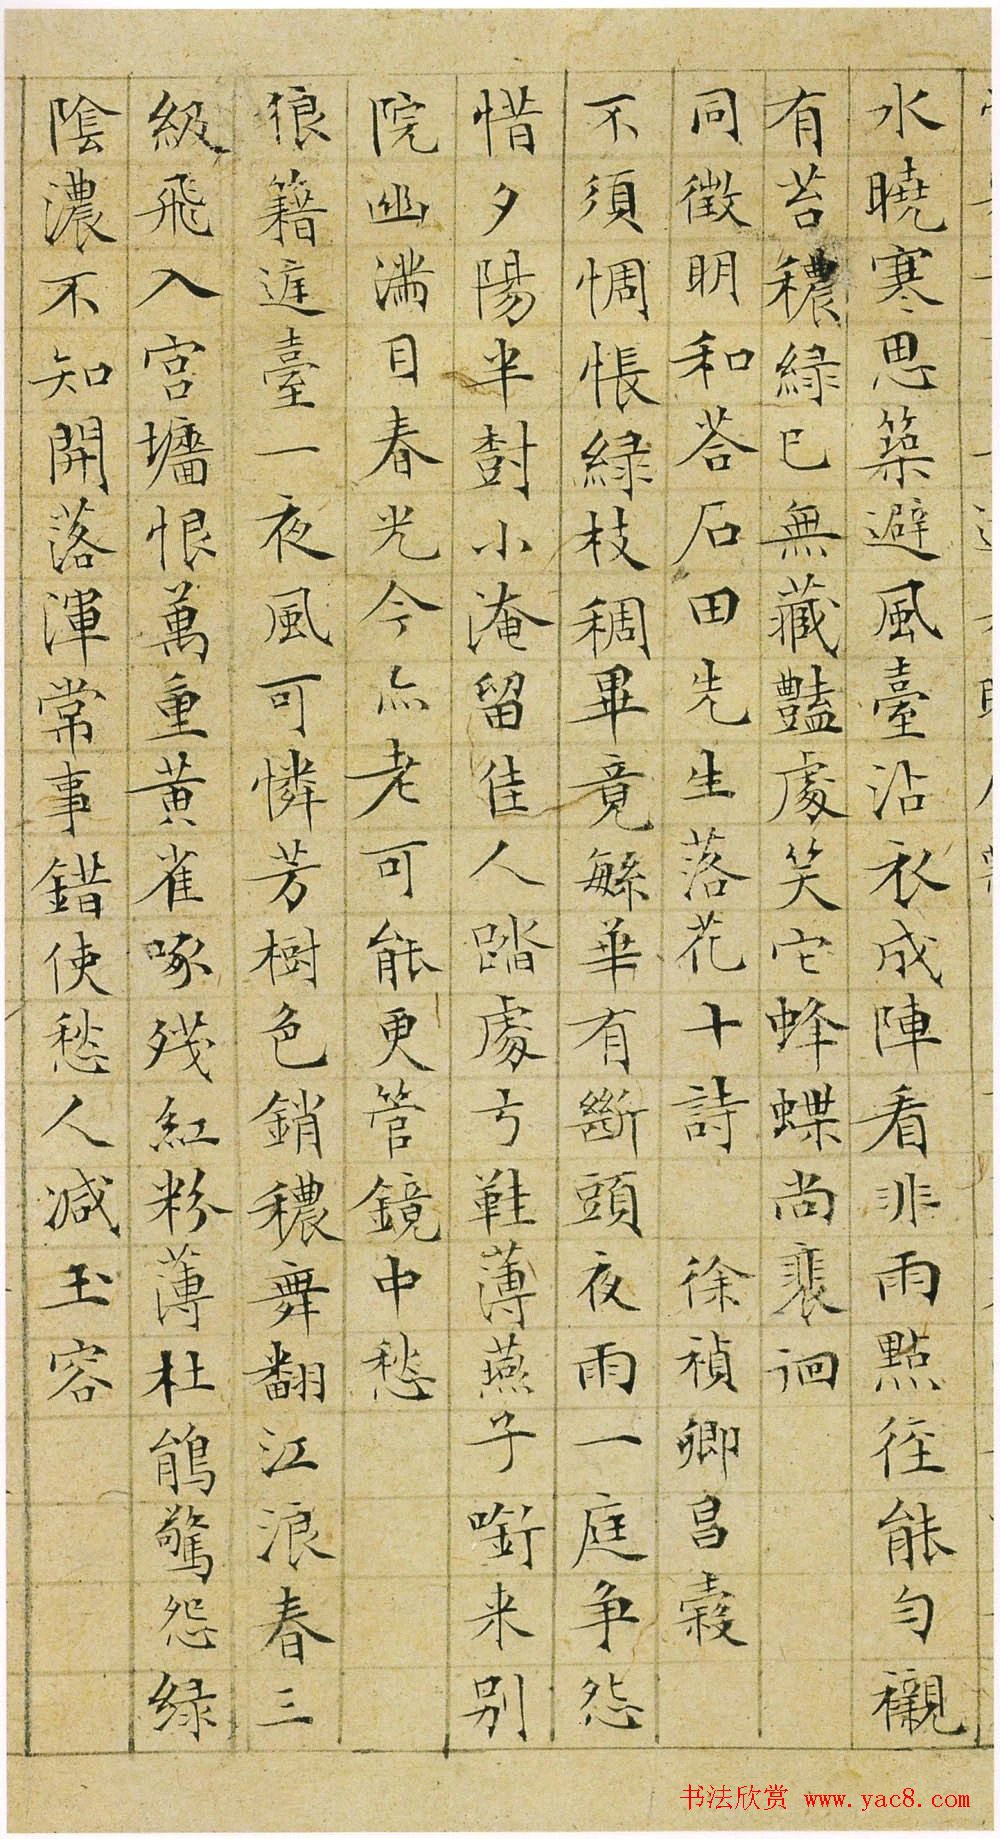 水曉寒思築避風臺沾衣成陣看非雨點徑能勻襯
有苔穠緑已無藏豔處笑它蜂蝶尚裴迴
同徵明和荅石田先生落花十詩 徐禎卿昌穀
不須惆悵緑枝稠畢竟繇華有斷頭夜雨一庭争怨
惜夕陽半樹小淹留佳人踏處弓鞋薄燕子啣来别
院幽滿目春光今亦老可能更管鏡中愁
狼籍近臺一夜風可憐芳樹色銷穠舞翻江浪春三
級飛入宫墻恨萬重黄雀啄殘紅粉薄杜鵑驚怨緑
陰濃不知開落渾常事錯使愁人减玉容
书法欣赏 www.yac8.com